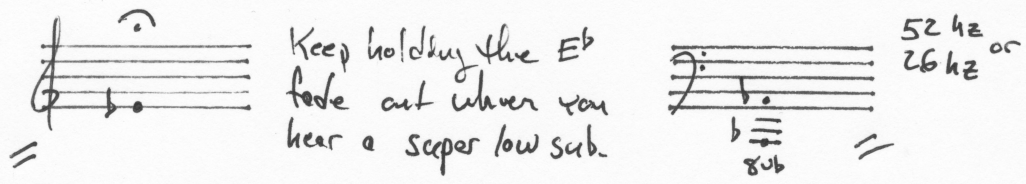 Keep holding the E♭
fade out when you
hear a super low sub.
52 hz or
26 hz
8vb